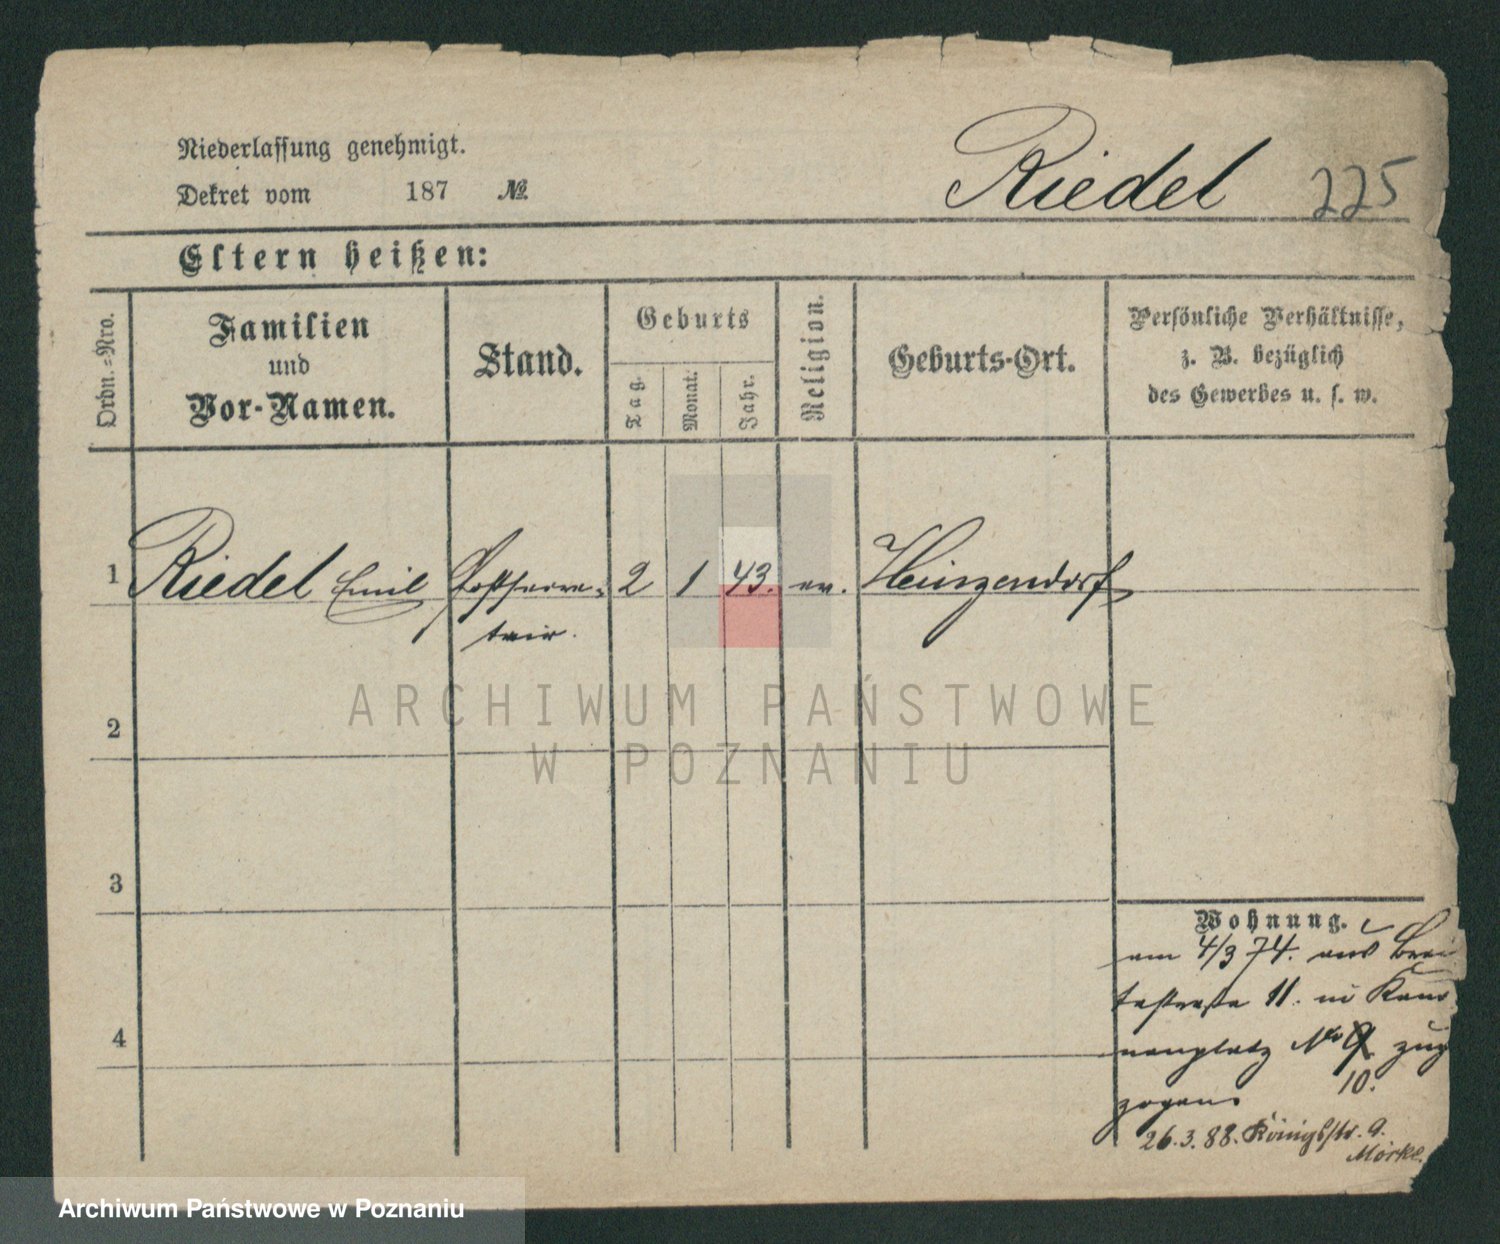 Niederlassung genehmigt.
Dekret vom 187 №
Riedel 225
Eltern heißen:
Ordn.-Nro.
Familien
und
Vor-Namen.
Stand.
Geburts
Tag.
Monat.
Jahr.
Religion.
Geburts-Ort.
Persönliche Verhältnisse,
z. B. bezüglich
des Gewerbes u. s. w.
1 Riedel Emil Postsecre- 2 1 43. ev. Heinzendorf
tair.
ARCHIWUM PAŃSTWOWE
W POZNANIU
2
3
4
Wohnung.
am 4/3 74. aus Brei
testraße 11. in Kano
nenplatz No 9 zuge
10.
zogen.
26.3.88. Königsstr. 9.
Morke.
Archiwum Państwowe w Poznaniu